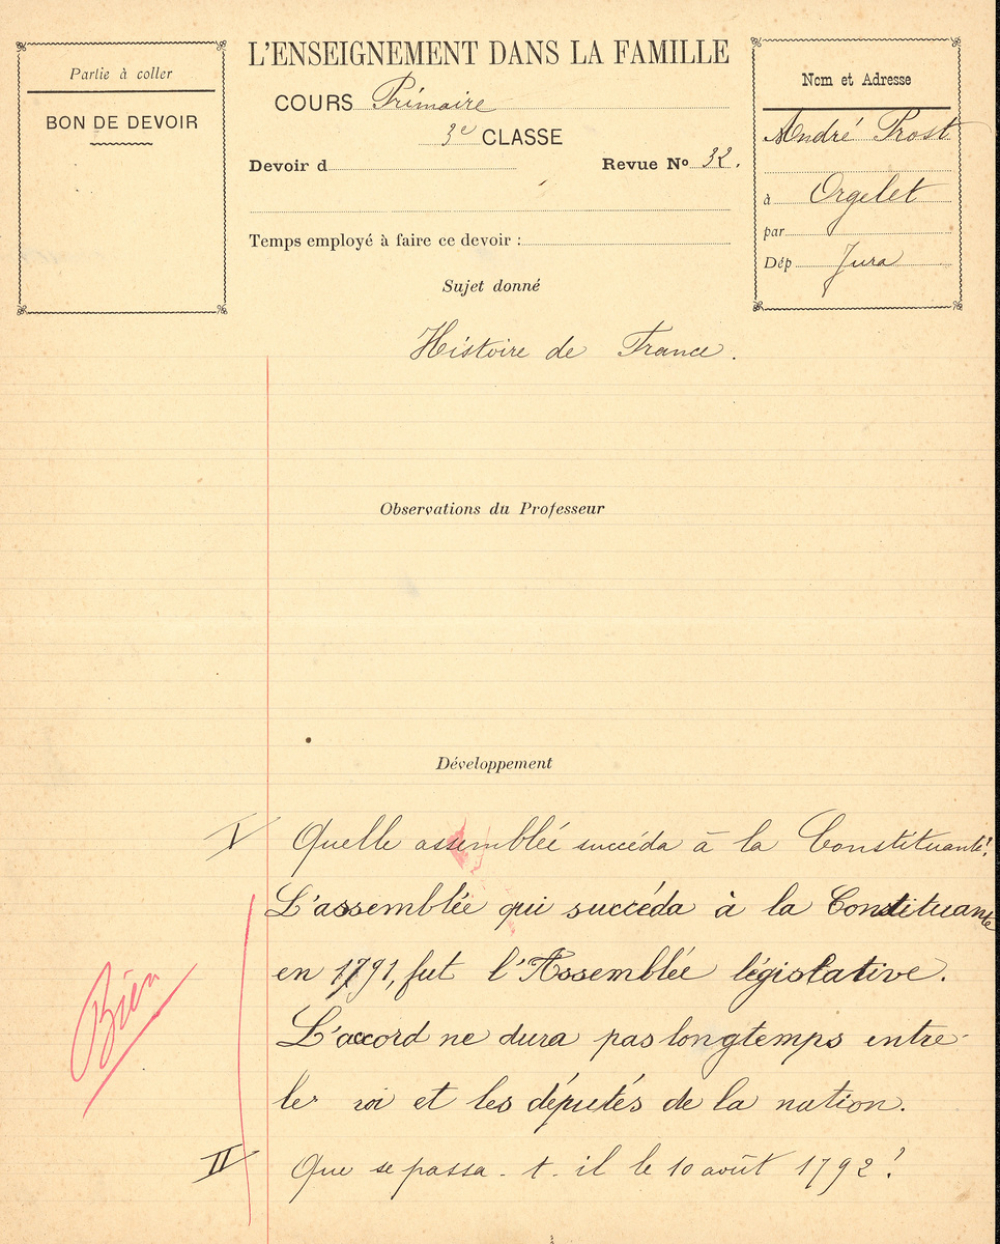 Partie à coller
BON DE DEVOIR
L'ENSEIGNEMENT DANS LA FAMILLE
COURS Primaire
3e CLASSE
Devoir d
Revue No 32.
Temps employé à faire ce devoir :
Nom et Adresse
André Prost
à Orgelet
par
Dép Jura
Sujet donné
Histoire de France.
Observations du Professeur
Développement
I Quelle assemblée succéda à la Constituante?
L'assemblée qui succéda à la Constituante
en 1791, fut l'Assemblée législative.
L'accord ne dura pas longtemps entre
le roi et les députés de la nation.
Bien
II Que se passa-t-il le 10 août 1792?